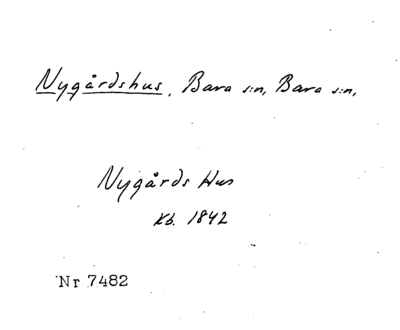 Nygårdshus, Bara s:n, Bara s:n,
Nygårds Hus
Kb. 1842
Nr 7482